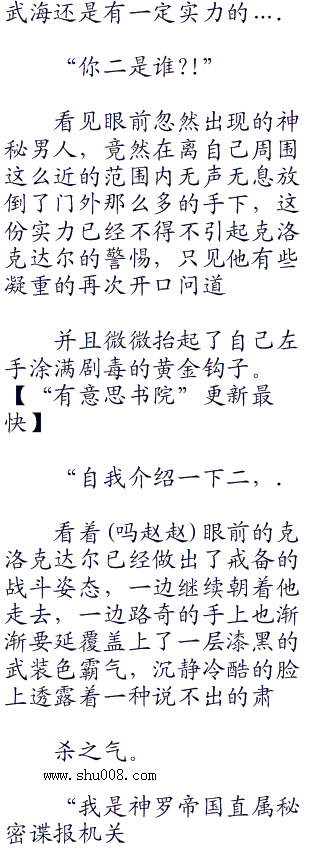 武海还是有一定实力的….
“你二是谁?!”
看见眼前忽然出现的神
秘男人，竟然在离自己周围
这么近的范围内无声无息放
倒了门外那么多的手下，这
份实力已经不得不引起克洛
克达尔的警惕，只见他有些
凝重的再次开口问道
并且微微抬起了自己左
手涂满剧毒的黄金钩子。
【“有意思书院”更新最
快】
“自我介绍一下二，.
看着(吗赵赵)眼前的克
洛克达尔已经做出了戒备的
战斗姿态，一边继续朝着他
走去，一边路奇的手上也渐
渐要延覆盖上了一层漆黑的
武装色霸气，沉静冷酷的脸
上透露着一种说不出的肃
杀之气。
www.shu008.com
“我是神罗帝国直属秘
密谍报机关